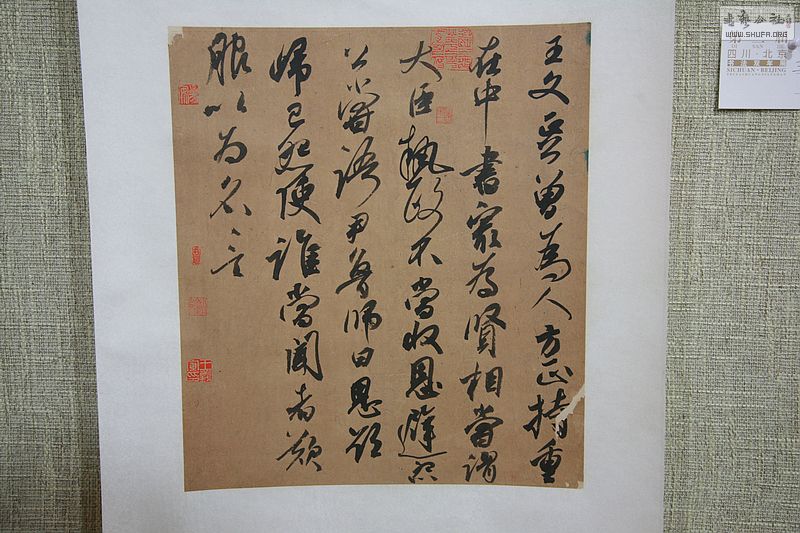 王文正曾為人方正持重
在中書最為賢相嘗謂
大臣執政不當收恩避怨
公嘗語尹魯師曰恩欲
歸己怨使誰當聞者歎
服以為名言
WWW.SHUFA.ORG
四川·北京
SICHUAN·BEIJING